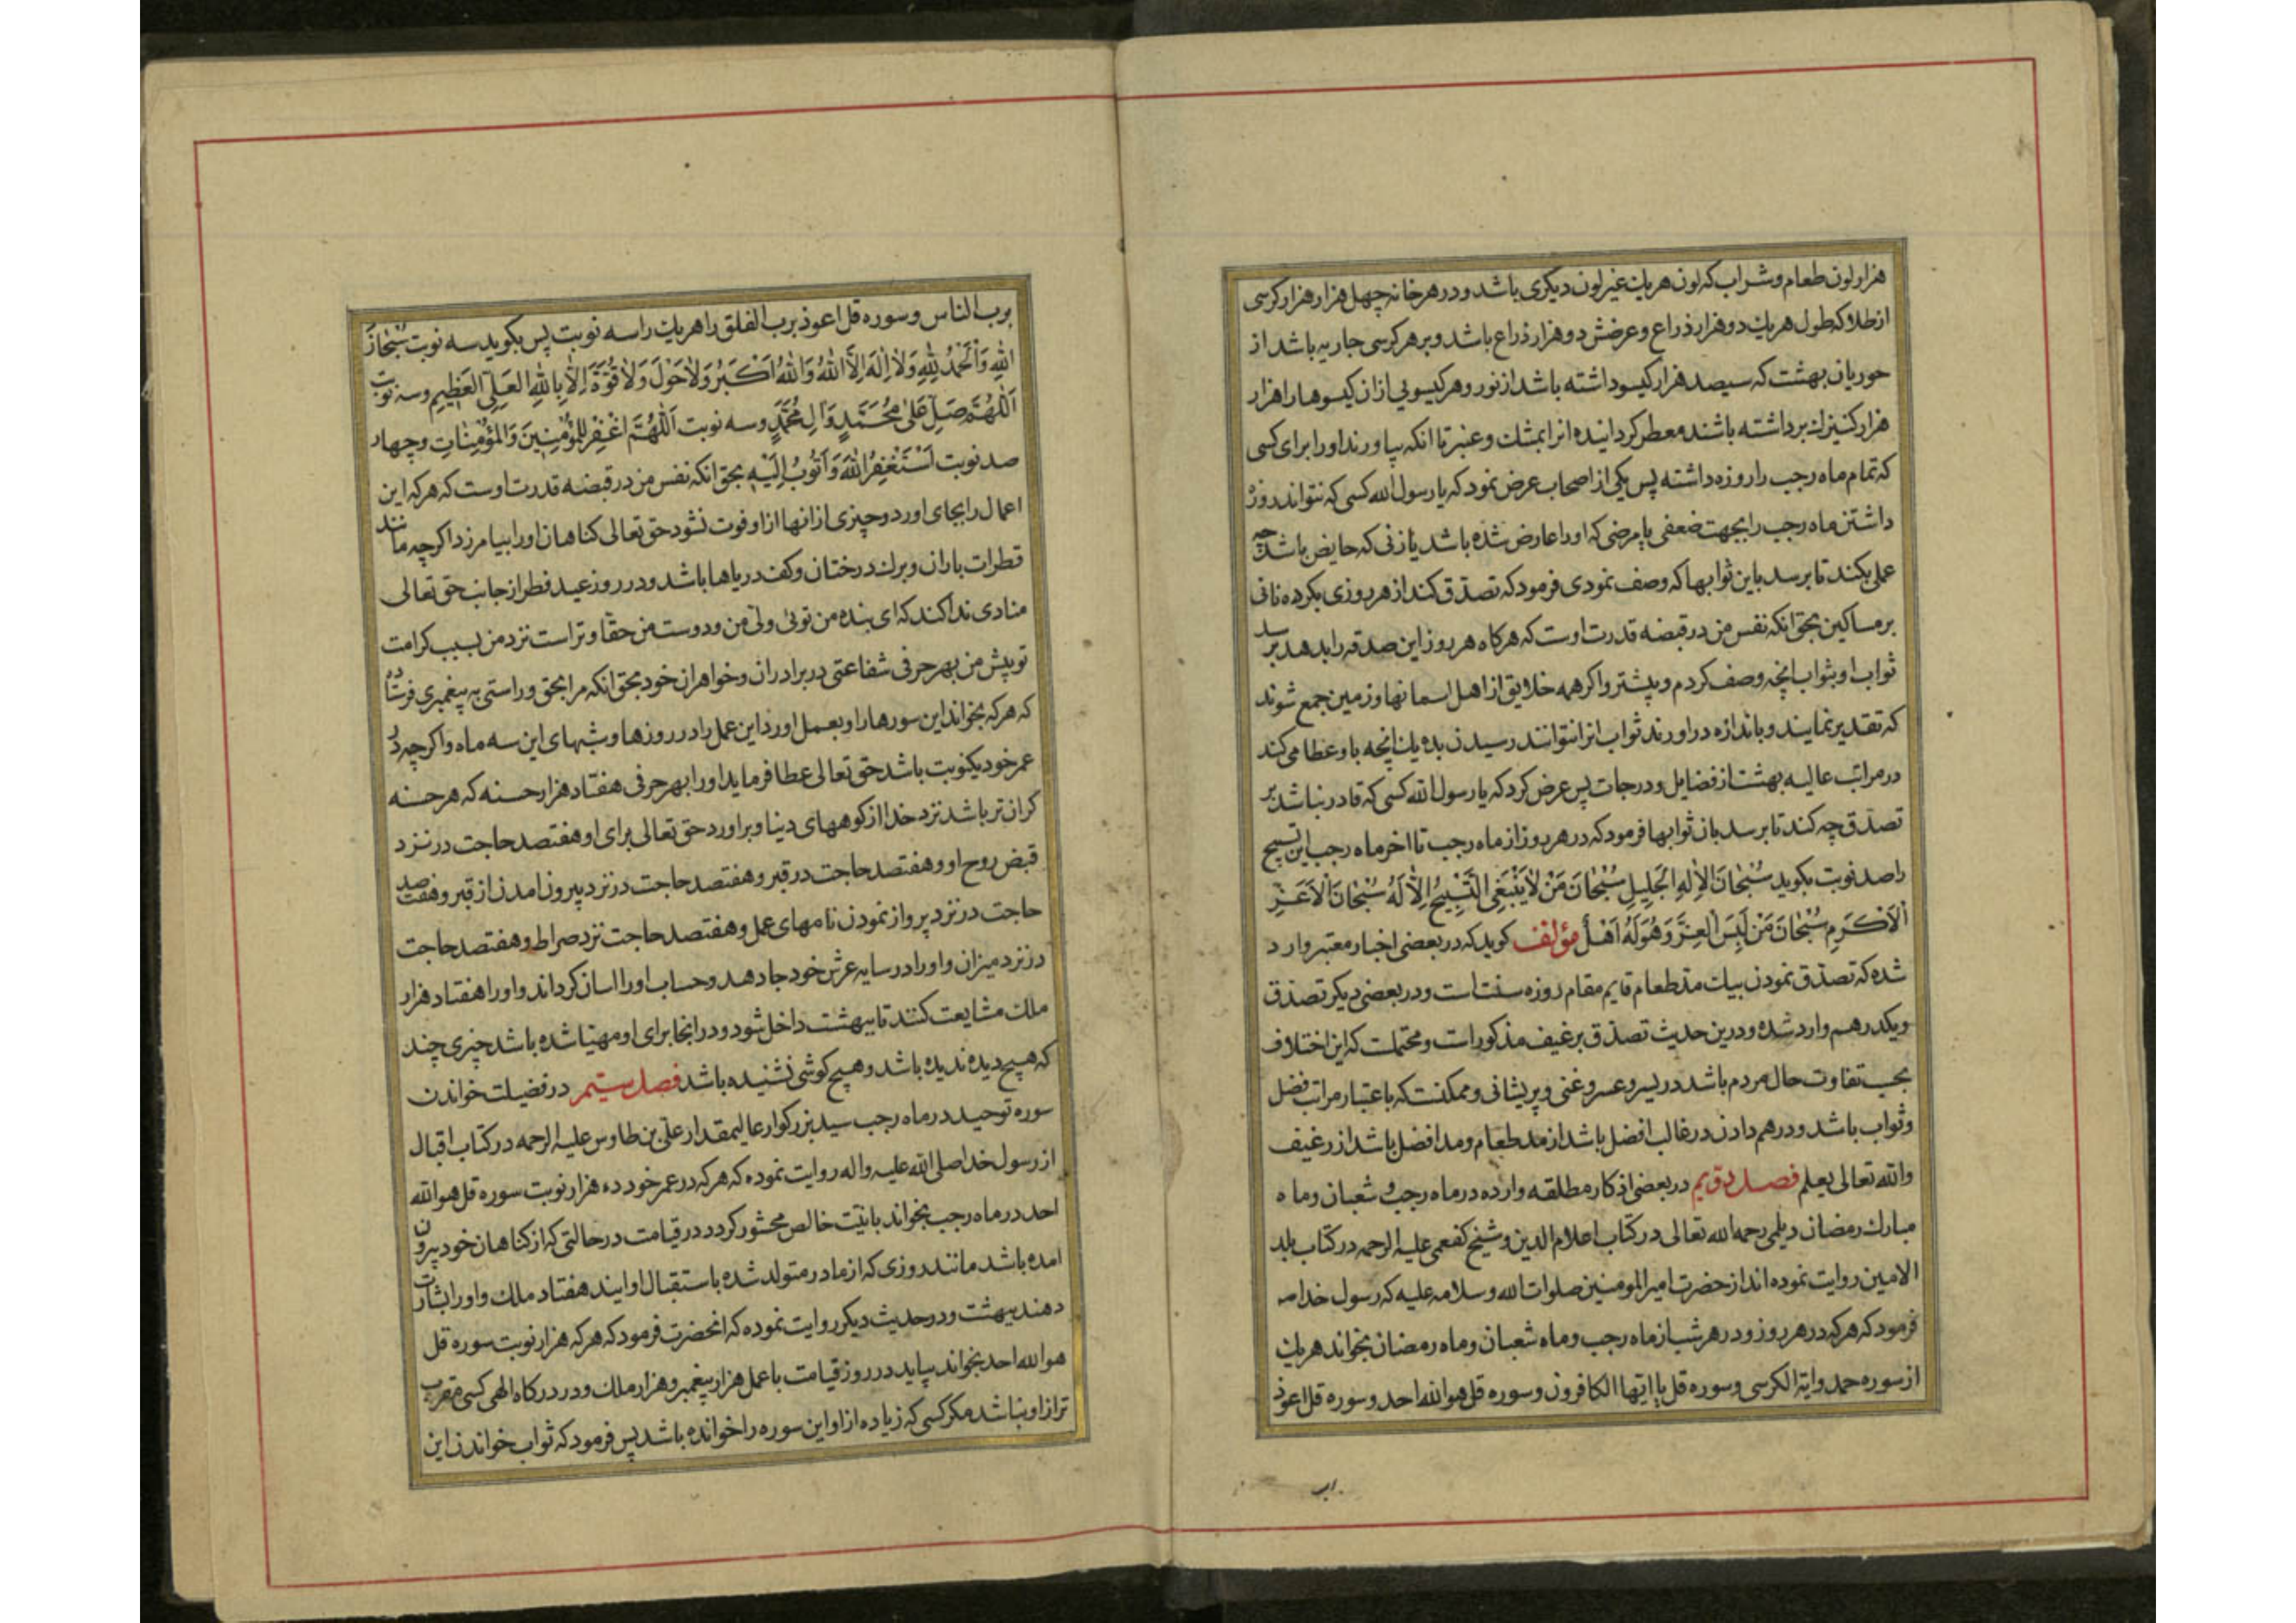 هزار لون طعام و شراب که لون هریك غیر لون دیکری باشد و در هر خانه چهل هزار هزار کرسی
از طلا که طول هریك دو هزار ذراع و عرضش دو هزار ذراع باشد و بر هر کرسی جاریه باشد از
حوریان بهشت که سیصد هزار کیسو داشته باشد از نور و هر کیسویی از ان کیسوها را هزار
هزار کنیزك برداشته باشند معطر کردانیده انرا بمشك و عنبر تا انکه بیاورند او را برای کسی
که تمام ماه رجب را روزه داشته پس یکی از اصحاب عرض نمود که یا رسول الله کسی که نتواند روزه
داشتن ماه رجب را بجهت ضعفی یا مرضی که او را عارض شده باشد یا زنی که حایض باشد چه
عملی بکند تا برسد باین ثوابها که وصف نمودی فرمود که تصدّق کند از هر روزی بکرده نانی
بر مساکین بحق انکه نفس من در قبضه قدرت اوست که هرکاه هر روز این صدقه را بدهد برسد
ثواب او بثواب انچه وصف کردم و بیشتر و اکر همه خلایق از اهل اسمانها و زمین جمع شوند
که تقدیر نمایند و باندازه دراورند ثواب انرا نتوانند رسیدن بده یك انچه باو عطا می کند
در مراتب عالیه بهشت از فضایل و درجات پس عرض کرد که یا رسول الله کسی که قادر نباشد بر
تصدّق چه کند تا برسد بان ثوابها فرمود که در هر روز از ماه رجب تا اخر ماه رجب این تسبیح
را صد نوبت بکوید سُبْحانَ الاِلهِ الجَلِیلِ سُبْحانَ مَنْ لایَنْبَغِی التَّسْبِیحُ اِلّا لَهُ سُبْحانَ الاَعَزِّ
اْلاَکْرَمِ سُبْحانَ مَنْ لَبِسَ الْعِزَّ وَهُوَ لَهُ اَهْلٌ مؤلف کوید که در بعضی اخبار معتبر وارد
شده که تصدّق نمودن بیك مدّ طعام قایم مقام روزه سنت است و در بعضی دیکر تصدّق
ویکدرهم وارد شده و درین حدیث تصدّق برغیف مذکور است و محتملست که این اختلاف
بحسب تفاوت حال مردم باشد در یسر و عسر و غنی و پریشانی و ممکنست که باعتبار مراتب فضل
و ثواب باشد و درهم دادن در غالب افضل باشد از مد طعام و مد افضل باشد از رغیف
والله تعالی یعلم فصل دویم در بعضی اذکار مطلقه وارده در ماه رجب و شعبان و ماه
مبارك رمضان دیلمی رحمه الله تعالی در کتاب اعلام الدین و شیخ کفعمی علیه الرحمه در کتاب بلد
الامین روایت نموده اند از حضرت امیرالمومنین صلوات الله و سلامه علیه که رسول خدا صه
فرمود که هرکه در هر روز و در هر شب از ماه رجب و ماه شعبان و ماه رمضان بخواند هریك
از سوره حمد و ایة الکرسی و سوره قل یا ایها الکافرون و سوره قل هو الله احد و سوره قل اعوذ
برب
برب الناس و سوره قل اعوذ برب الفلق را هریك را سه نوبت پس بکوید سه نوبت سُبْحانَ
اللهِ وَاْلحَمْدُ لِلّهِ وَلا اِلهَ اِلَّا اللهُ وَاللهُ اَکْبَرُ وَلا حَوْلَ وَلا قُوَّةَ اِلّا بِاللهِ العَلِیِّ العَظِیمِ و سه نوبت
اَللّهُمَّ صَلِّ عَلی مُحَمَّدٍ وَآلِ مُحَمَّدٍ و سه نوبت اَللّهُمَّ اغْفِرْ لِلْمُؤْمِنِینَ وَالمُؤْمِناتِ و چهار
صد نوبت اَسْتَغْفِرُ اللهَ وَاَتُوبُ اِلَیْهِ بحق انکه نفس من در قبضه قدرت اوست که هرکه این
اعمال را بجای اورد و چیزی از انها از او فوت نشود حق تعالی کناهان او را بیامرزد اکرچه مانند
قطرات باران و برك درختان و کف دریاها باشد و در روز عید فطر از جانب حق تعالی
منادی ندا کند که ای بنده من تویی ولی من و دوست من حقّا و تراست نزد من بسبب کرامت
تو پیش من بهر حرفی شفاعتی در برادران و خواهران خود بحق انکه مرا بحق و راستی به پیغمبری فرستاده
که هرکه بخواند این سورها را و بعمل اورد این عمل را در روزها و شبهای این سه ماه و اکرچه در
عمر خود یکنوبت باشد حق تعالی عطا فرماید او را بهر حرفی هفتاد هزار حسنه که هر حسنه
کران تر باشد نزد خدا از کوههای دینا و براورد حق تعالی برای او هفتصد حاجت در نزد
قبض روح او و هفتصد حاجت در قبر و هفتصد حاجت در نزد بیرون امدن از قبر و هفتصد
حاجت در نزد پرواز نمودن نامهای عمل و هفتصد حاجت نزد صراط و هفتصد حاجت
در نزد میزان و او را در سایه عرش خود جا دهد و حساب او را اسان کرداند و او را هفتاد هزار
ملك مشایعت کنند تا ببهشت داخل شود و در انجا برای او مهیّا شده باشد چیزی چند
که هیچ دیده ندیده باشد و هیچ کوشی نشنیده باشد فصل سیّم در فضیلت خواندن
سوره توحید در ماه رجب سید بزرکوار عالیمقدار علی بن طاوس علیه الرحمه در کتاب اقبال
از رسول خدا صلی الله علیه واله روایت نموده که هرکه در عمر خود ده هزار نوبت سوره قل هو الله
احد در ماه رجب بخواند با نیّت خالص محشور کردد در قیامت در حالتی که از کناهان خود بیرون
امده باشد مانند روزی که از مادر متولد شده باستقبال او ایند هفتاد ملك و او را بشارت
دهند ببهشت و در حدیث دیکر روایت نموده که انحضرت فرمود که هرکه هزار نوبت سوره قل
هو الله احد بخواند بیاید در روز قیامت با عمل هزار پیغمبر و هزار ملك و در درکاه الهی کسی مقرب
تر از او نباشد مکر کسی که زیاده از او این سوره را خوانده باشد پس فرمود که ثواب خواندن این